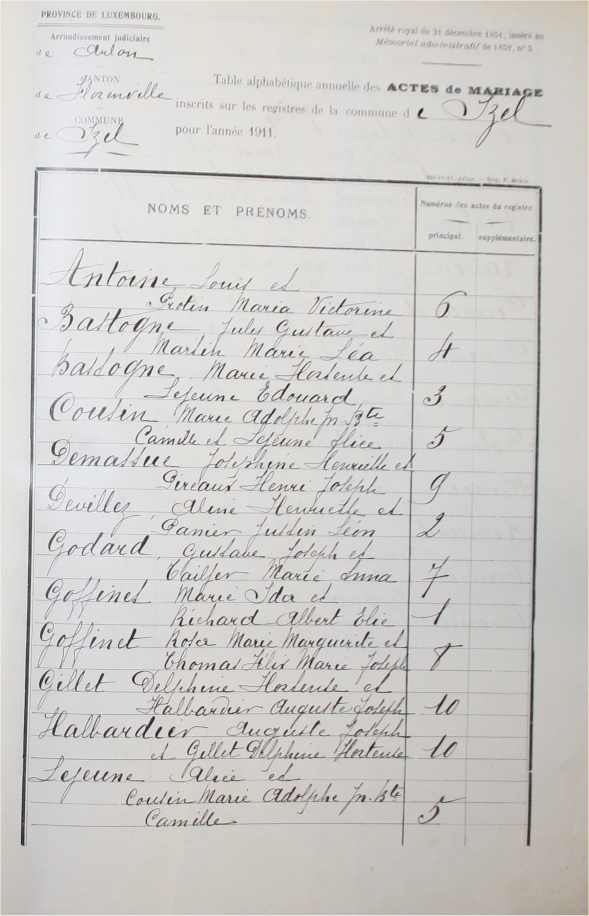 PROVINCE DE LUXEMBOURG.
Arrondissement judiciaire
de Arlon
CANTON
de Florenville
COMMUNE
de Izel
Arrêté royal du 31 décembre 1851, inséré au
Mémorial administratif de 1852, nº 5.
Table alphabétique annuelle des ACTES de MARIAGE
inscrits sur les registres de la commune de Izel
pour l'année 1911.
NOMS ET PRÉNOMS.
Numéros des actes du registre
principal. supplémentaire.
Antoine Louis et
Protin Maria Victorine 6
Bastogne Jules Gustave et
Martin Marie Léa 4
Bastogne, Marie Hortense et
Lejeune Edouard, 3
Cousin Marie Adolphe Jn Bte
Camille et Lejeune Alice 5
Demassue Joséphine Henriette et
Pireaux Henri Joseph 9
Devillez, Aline Henriette et
Panier Justin Léon 2
Godard, Gustave Joseph et
Tailfer Marie Anna 7
Goffinet Marie Ida et
Richard Albert Elie 1
Goffinet Rose Marie Marguerite et
Thomas Félix Marie Joseph 8
Gillet Delphine Hortense et
Halbardier Auguste Joseph 10
Halbardier Auguste Joseph
et Gillet Delphine Hortense 10
Lejeune Alice et
Cousin Marie Adolphe Jn Bte
Camille 5